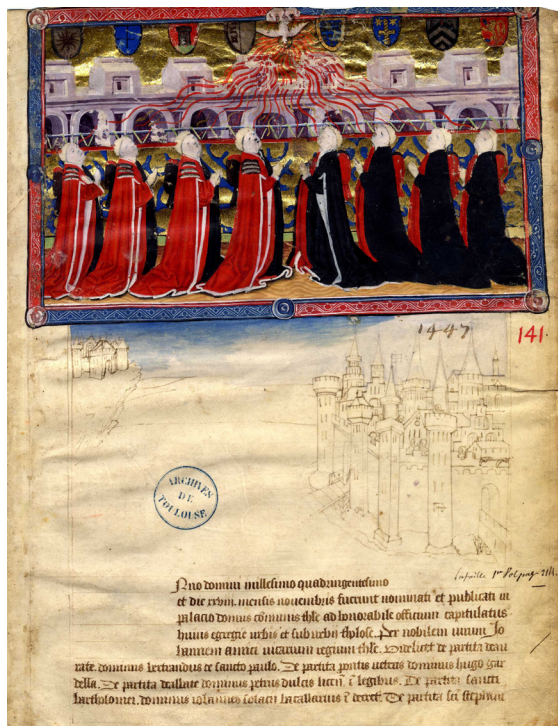 1447
141
ARCHIVES
DE
TOULOUSE
Lafaille 1er
Nno domini millesimo quadringentesimo
et die xxviii mensis nouembris fuerunt nominati et publicati in
palacio domus comunis thle ad honorabile officium capitulatus
huius egregie urbis et suburbii tholose. Per nobilem uirum Jo
hannem amici uicarium regium thle. Videlicet de partita deau
rate. dominus bertrandus de sancto paulo. De partita pontis ueteris dominus hugo gar
della. De partita dealbate dominus petrus dulcis licen. i legibus. De partita sancti
bartholomei. dominus iohannes solacii bacallarius i decret. De partita sci stephani